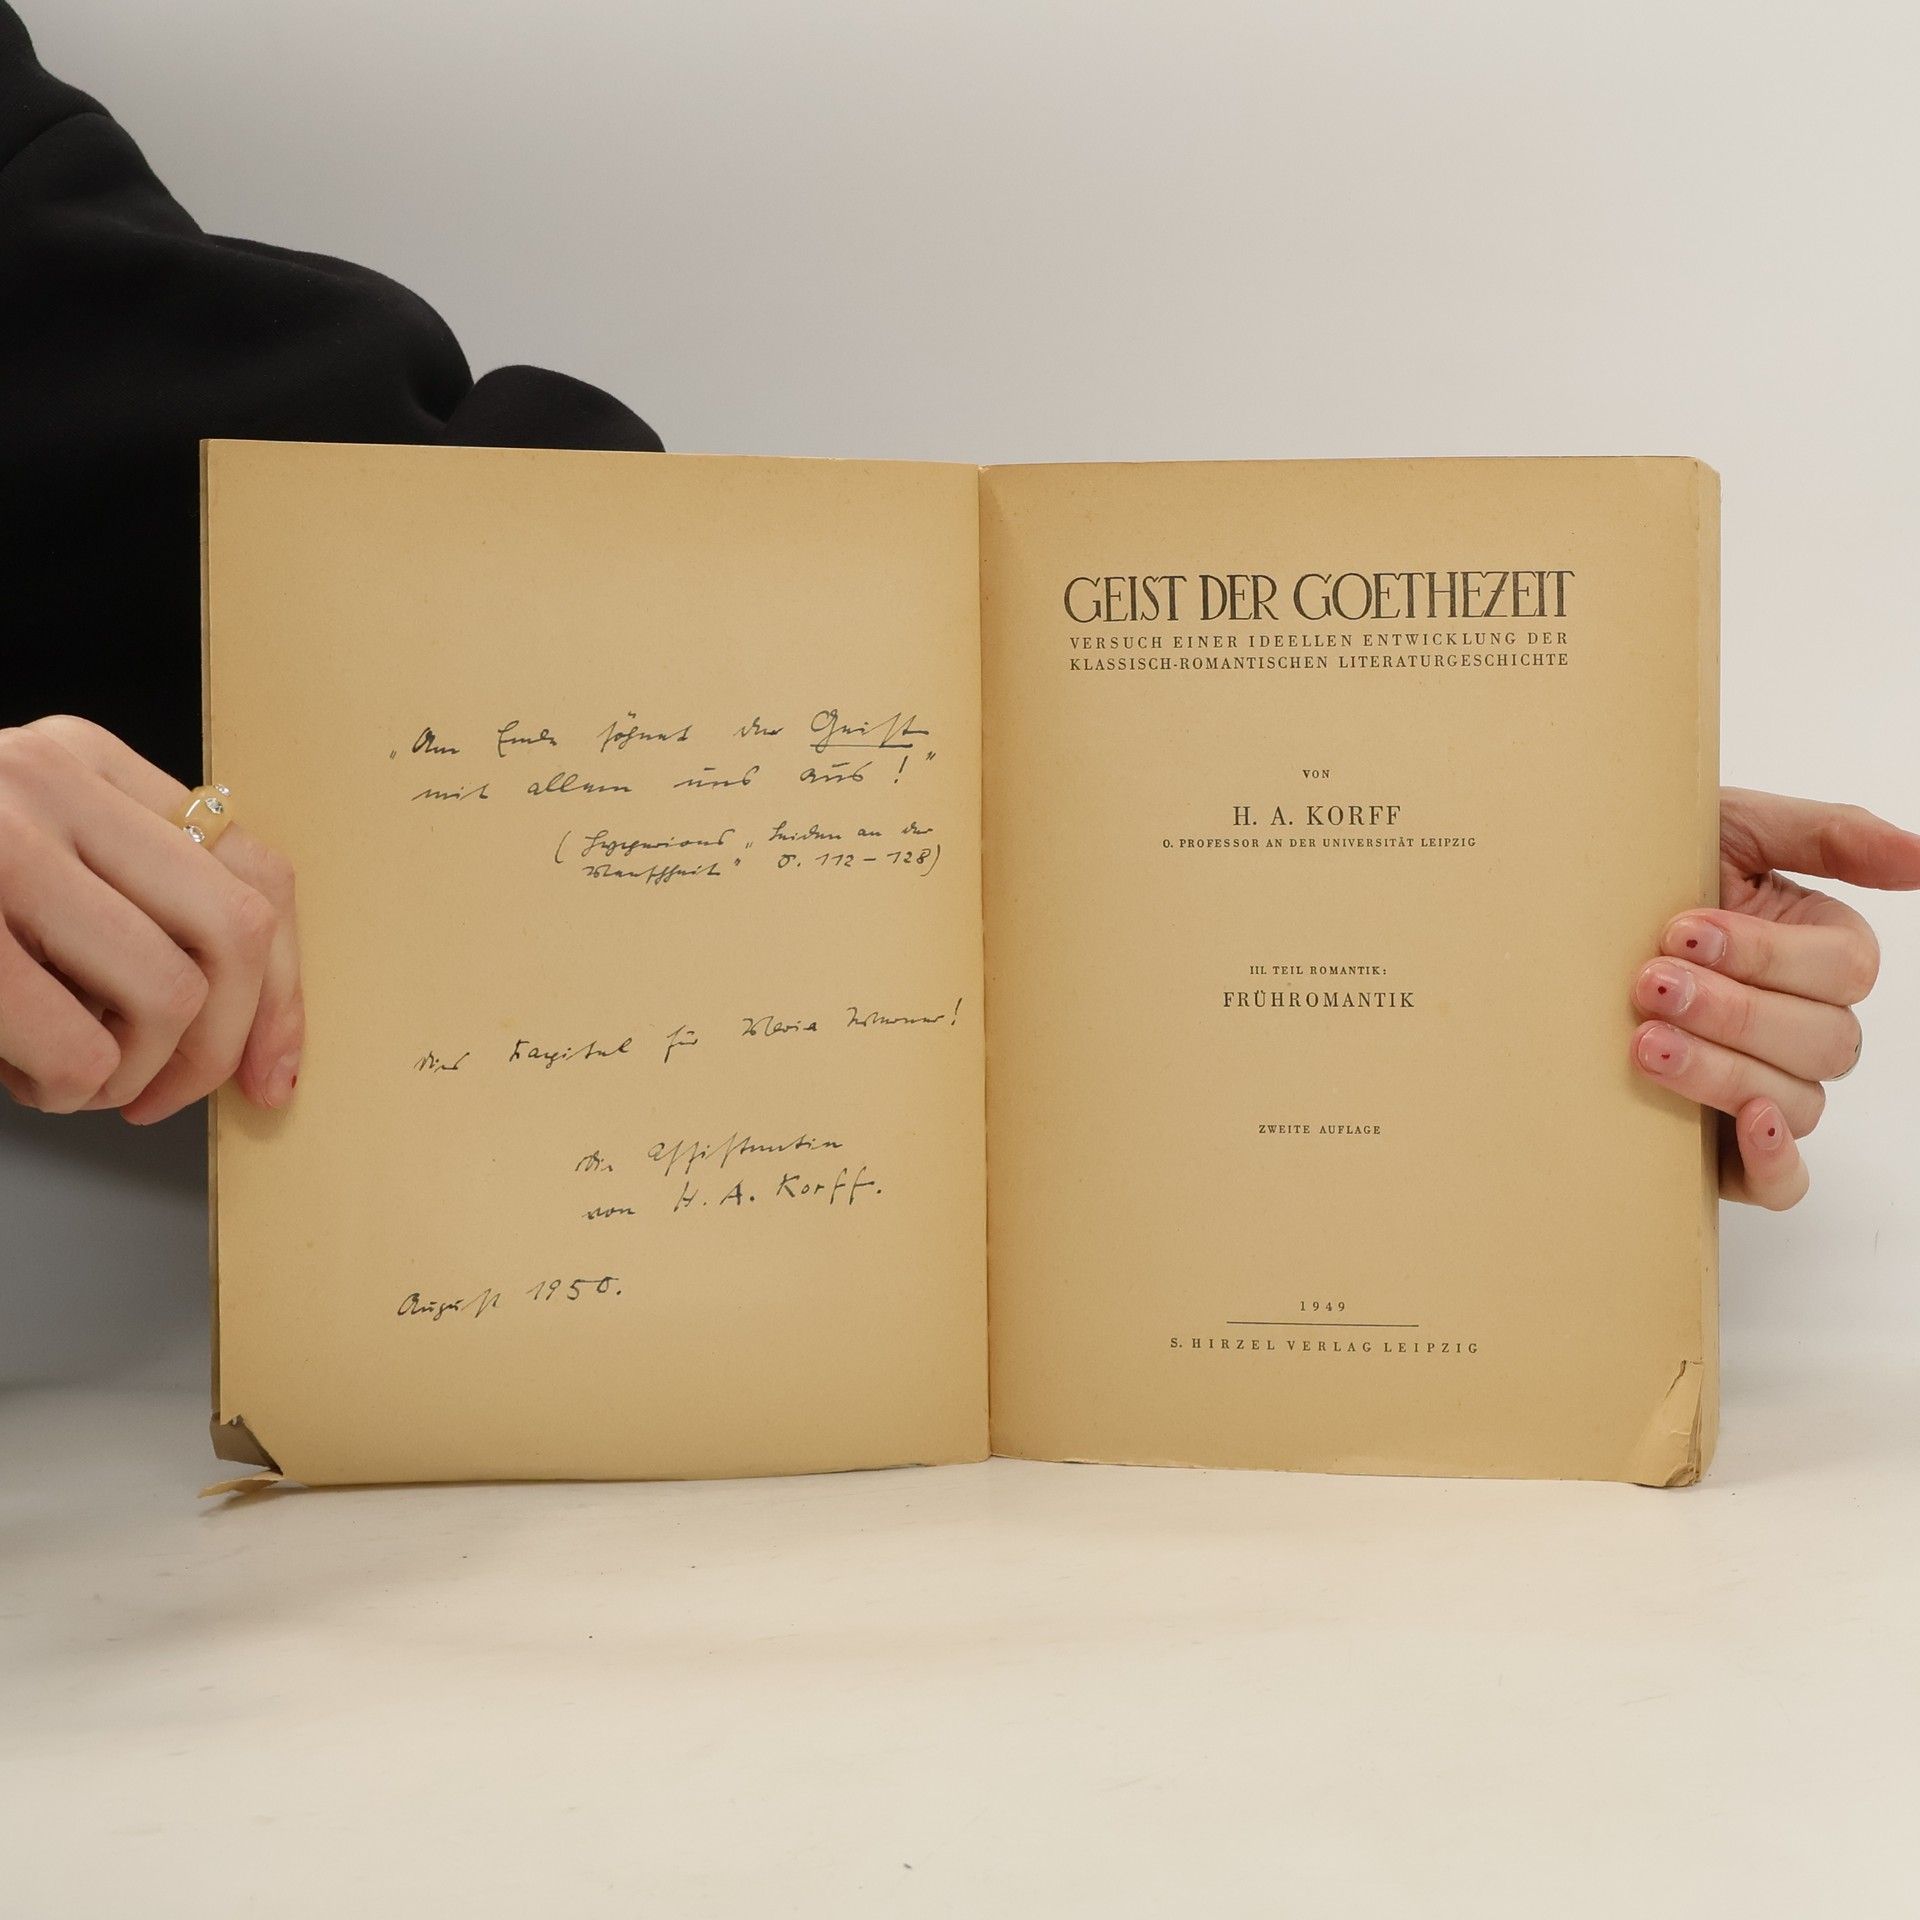 „Am Ende söhnet der Geist
mit allem uns aus!"
(Hyperions „Leiden an der
Menschheit" S. 112-128)
Kapitel für Maria
die Assistentin
von H. A. Korff.
August 1950.
GEIST DER GOETHEZEIT
VERSUCH EINER IDEELLEN ENTWICKLUNG DER
KLASSISCH-ROMANTISCHEN LITERATURGESCHICHTE
VON
H. A. KORFF
O. PROFESSOR AN DER UNIVERSITÄT LEIPZIG
III. TEIL ROMANTIK:
FRÜHROMANTIK
ZWEITE AUFLAGE
1949
S. HIRZEL VERLAG LEIPZIG